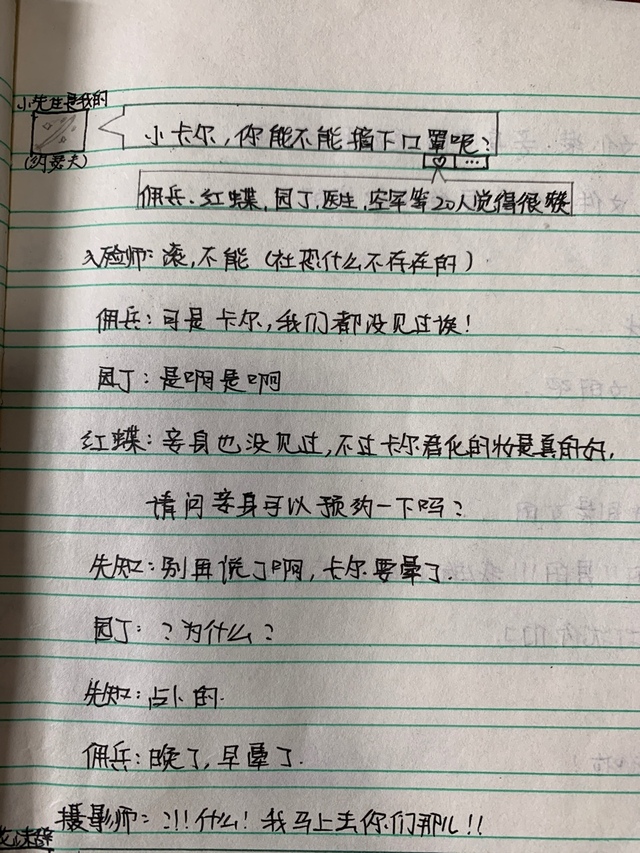 小先生是我的
(约瑟夫)
小卡尔,你能不能摘下口罩呢?
佣兵、红蝶,园丁,医生,空军等20人觉得很赞
入殓师:滚,不能(社恐什么不存在的)
佣兵:可是卡尔,我们都没见过诶!
园丁:是啊是啊
红蝶:妾身也没见过,不过卡尔君化的妆是真的好,
请问妾身可以预约一下吗?
先知:别再说了啊,卡尔要晕了.
园丁:?为什么?
先知:占卜的.
佣兵:晚了,早晕了.
摄影师:?!!什么!我马上去你们那儿!!